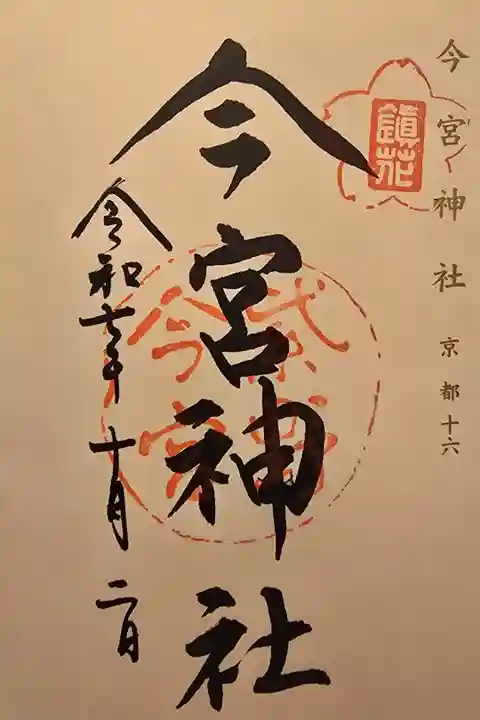 今宮神社 京都十六
鎮花
今宮神社
紫野
今宮
令和七年 十月 二日